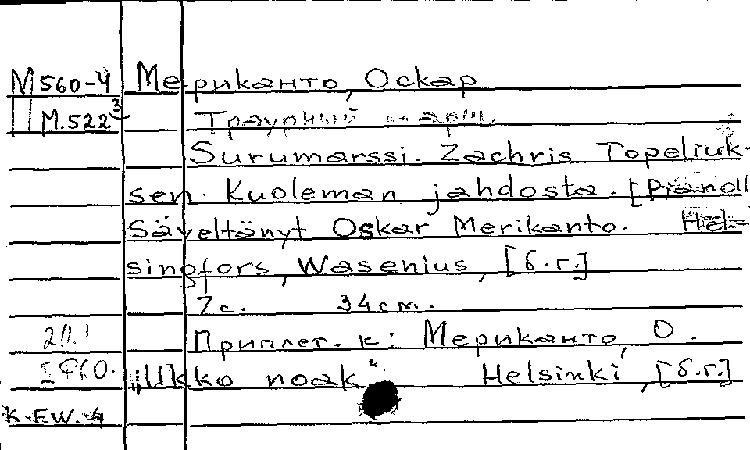 М 560-4 Мериканто, Оскар
М.522³ Траурный марш.
Surumarssi. Zachris Topeliuk-
sen Kuoleman jahdosta. [Pianoll
Säveltänyt Oskar Merikanto. Hel-
singfors, Wasenius, [б.г.]
7 с. 34 см.
Приплет. к: Мериканто, О.
„Ukko noak“ Helsinki, [б.г.]
K.EW.-4